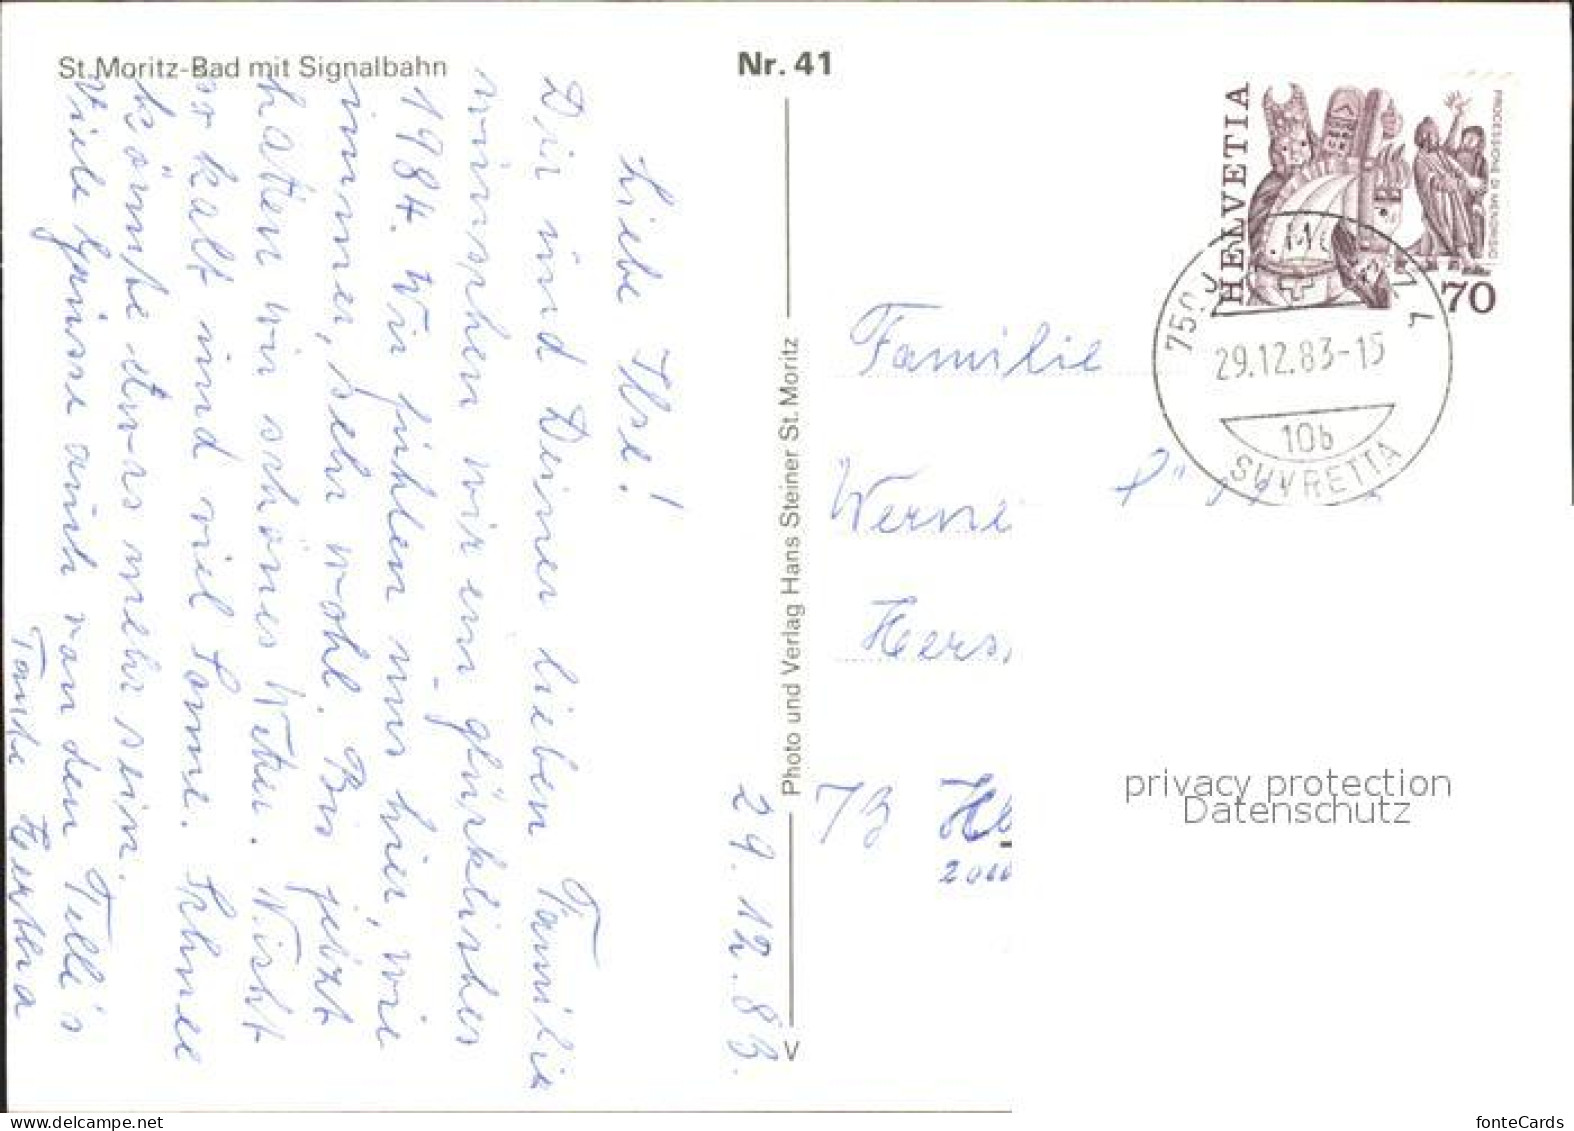 St. Moritz-Bad mit Signalbahn
Nr. 41
HELVETIA
PROCESSIONE DI MENDRISIO
70
29.12.83-15
10b
SUVRETTA
29.12.83.
Liebe Ilse!
Dir und Deiner lieben Familie
wünschen wir ein glückliches
1984. Wir fühlen uns hier, wie
immer, sehr wohl. Bis jetzt
hatten wir schönes Wetter. Nicht
so kalt und viel Sonne. Schnee
könnte etwas mehr sein.
Viele Grüsse auch von den Telli's
Tante Hertha
Photo und Verlag Hans Steiner St. Moritz
V
Familie
Werne
Hers
73
privacy protection
Datenschutz
fonteCards